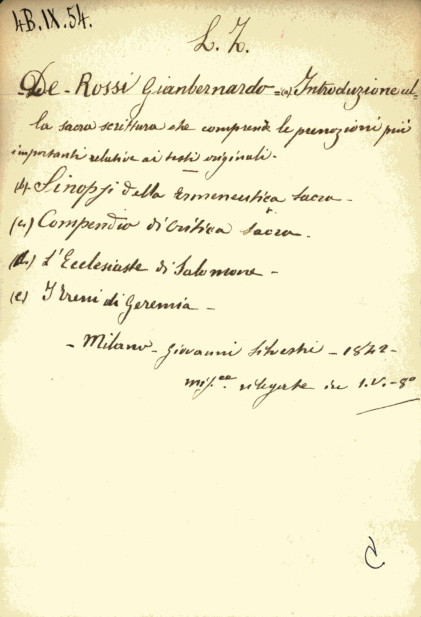 4B.IX.54.
L. Z.
De-Rossi Gianbernardo = (a) Introduzione al-
la sacra scrittura che comprende le prenozioni più
importanti relative ai testi originali.
(b) Sinopsi della Ermeneutica sacra -
(c) Compendio di Critica Sacra -
(d) L'Ecclesiaste di Salomone -
(e) I Treni di Geremia -
- Milano - Giovanni Silvestri - 1842 -
mis.ee rilegate in 1.V. - 8º
C